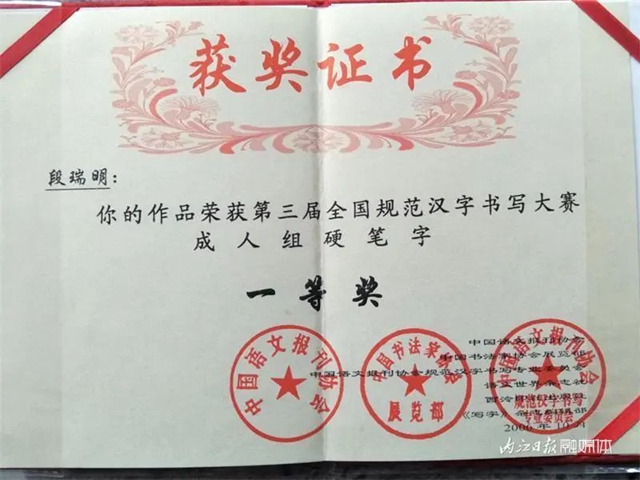 获奖证书
段瑞明：
你的作品荣获第三届全国规范汉字书写大赛
成人组硬笔字
一等奖
中国语文报刊协会
中国书法家协会展览部
中国语文报刊协会规范汉字书写专业委员会
语文世界杂志社
西泠印社出版社
《写字》杂志编辑部
2006年10月
中国语文报刊协会
中国书法家协会
展览部
语文报刊协会
规范汉字书写
专业委员会
内江日报融媒体